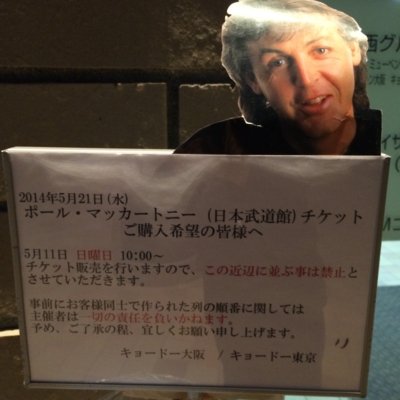 西グル
ミューペン
イサ
Mコ
2014年5月21日(水)
ポール・マッカートニー (日本武道館) チケット
ご購入希望の皆様へ
5月11日 日曜日 10:00～
チケット販売を行いますので、この近辺に並ぶ事は禁止と
させていただきます。
事前にお客様同士で作られた列の順番に関しては
主催者は一切の責任を負いかねます。
予め、ご了承の程、宜しくお願い申し上げます。
キョードー大阪 / キョードー東京